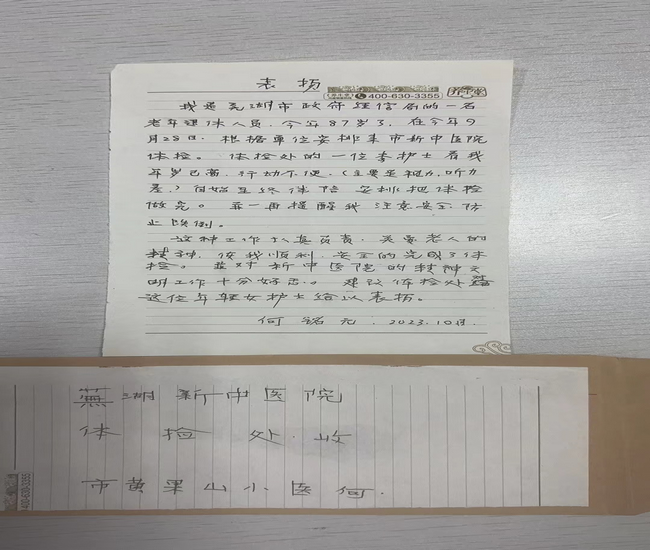 表扬
400-630-3355
我是芜湖市政府经信局的一名
老年退休人员，今年87岁了，在今年9
月28日，根据单位安排来市新中医院
体检。体检处的一位李护士看我
年岁已高，行动不便，（主要是视力，听力
差，）自始至终体陪安排把体检
做完。并一再提醒我注意安全，防
止跌倒。
这种工作认真负责，关爱老人的
精神，使我顺利，安全的完成了体
检。我对新中医院的精神文
明工作十分好感。建议体检处
这位年轻女护士给以表扬。
何铭元．2023.10月．
蕪湖新中医院
体检处．收
市黄果山小医何．
400-630-3355